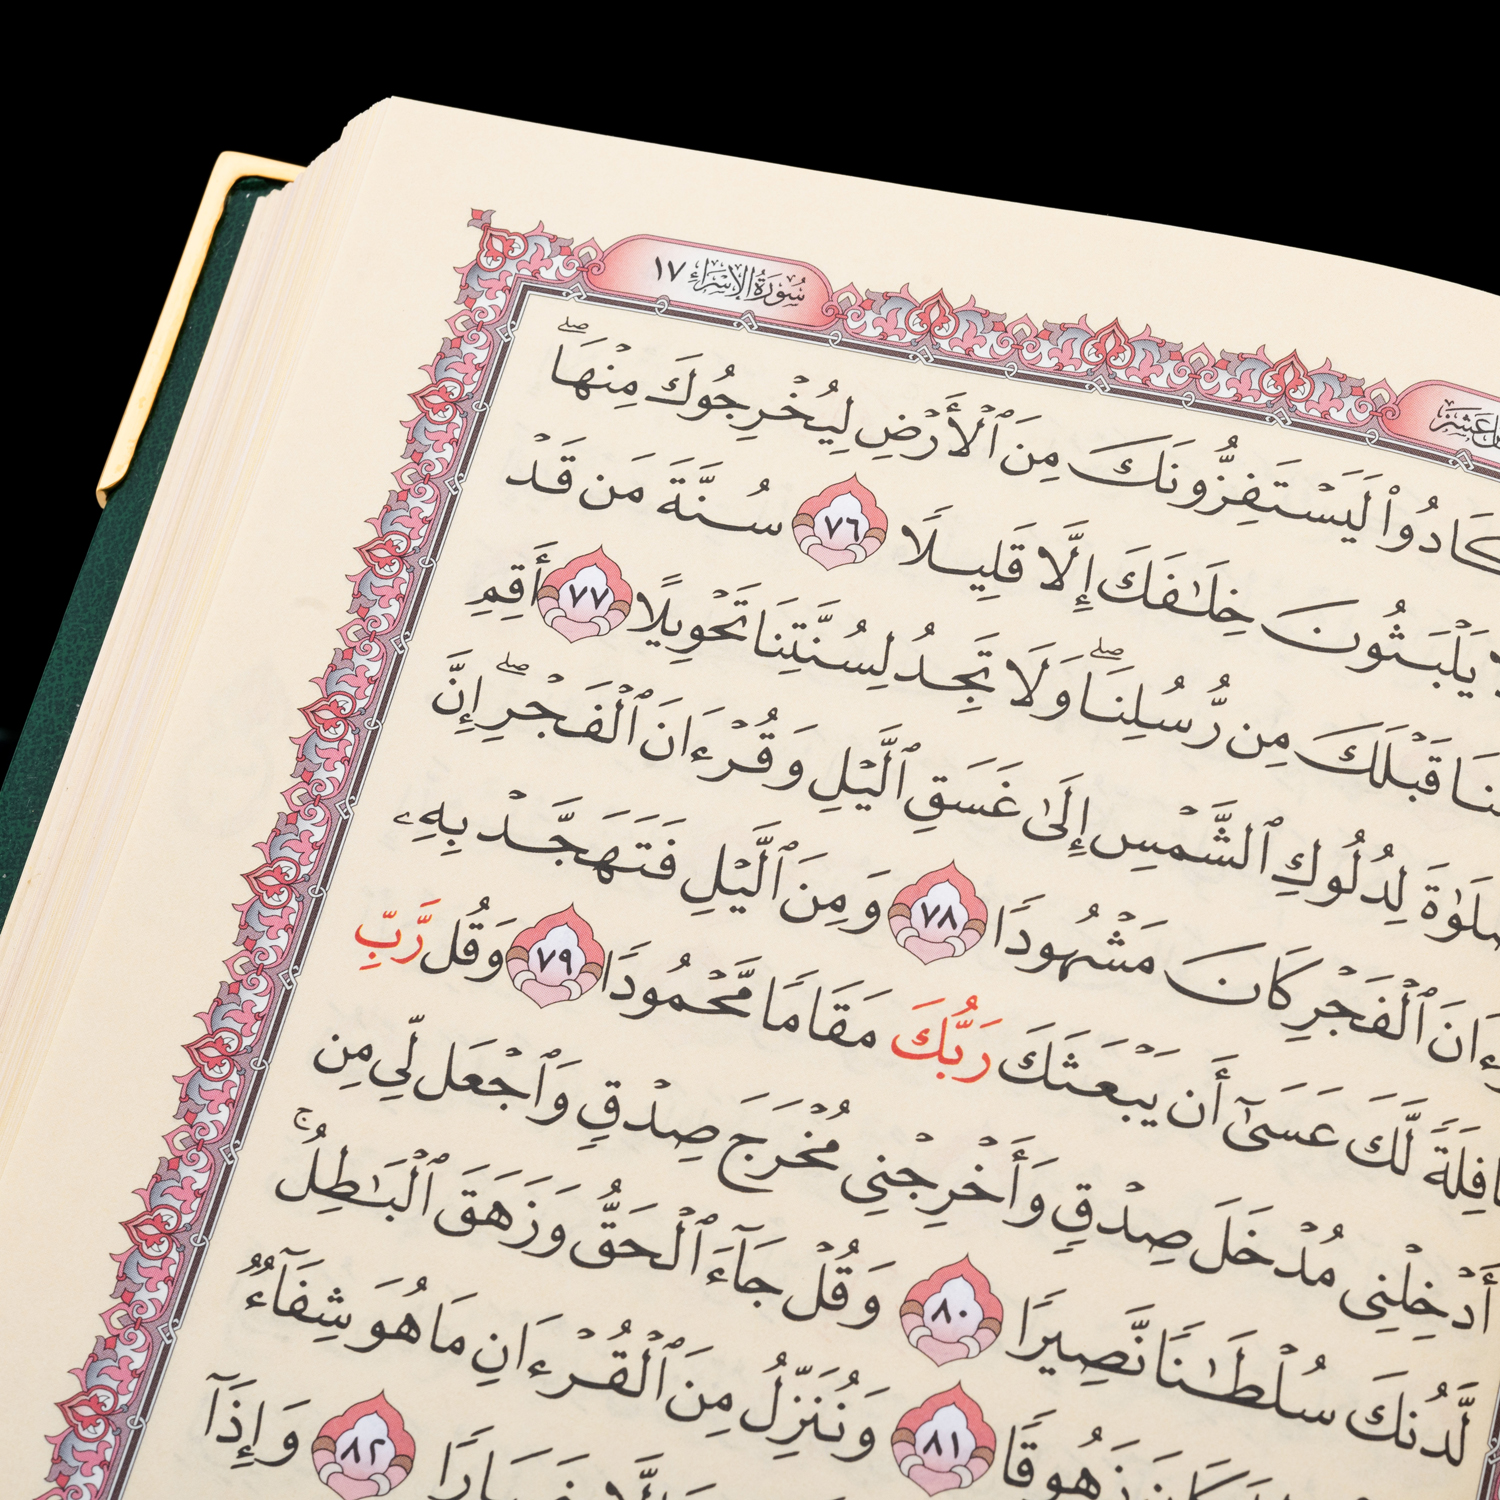 سُورَةُ الإِسْرَاءِ ١٧
لَيَسْتَفِزُّونَكَ مِنَ ٱلْأَرْضِ لِيُخْرِجُوكَ مِنْهَا ۖ
يَلْبَثُونَ خِلَـٰفَكَ إِلَّا قَلِيلًا ٧٦ سُنَّةَ مَن قَدْ
قَبْلَكَ مِن رُّسُلِنَا ۖ وَلَا تَجِدُ لِسُنَّتِنَا تَحْوِيلًا ٧٧ أَقِمِ
لِدُلُوكِ ٱلشَّمْسِ إِلَىٰ غَسَقِ ٱلَّيْلِ وَقُرْءَانَ ٱلْفَجْرِ ۖ إِنَّ
ٱلْفَجْرِ كَانَ مَشْهُودًا ٧٨ وَمِنَ ٱلَّيْلِ فَتَهَجَّدْ بِهِۦ
لَّكَ عَسَىٰٓ أَن يَبْعَثَكَ رَبُّكَ مَقَامًا مَّحْمُودًا ٧٩ وَقُل رَّبِّ
أَدْخِلْنِى مُدْخَلَ صِدْقٍ وَأَخْرِجْنِى مُخْرَجَ صِدْقٍ وَٱجْعَل لِّى مِن
لَّدُنكَ سُلْطَـٰنًا نَّصِيرًا ٨٠ وَقُلْ جَآءَ ٱلْحَقُّ وَزَهَقَ ٱلْبَـٰطِلُ ۚ
زَهُوقًا ٨١ وَنُنَزِّلُ مِنَ ٱلْقُرْءَانِ مَا هُوَ شِفَآءٌ
٨٢ وَإِذَآ